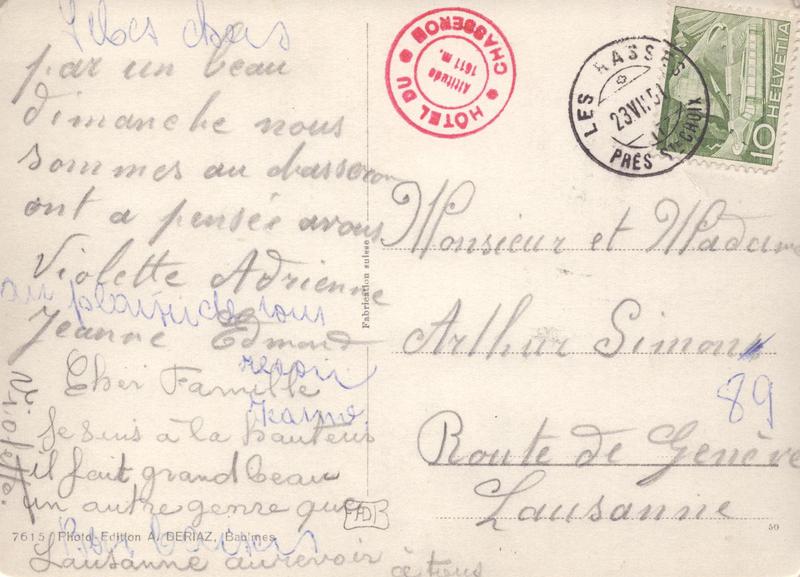 chers
par un beau
dimanche nous
sommes au chasseron
ont a pensée avous
Violette Adrienne
au plaisir de vous
Jeanne Edmond
revoir
Cher Famille
Jeanne
Je suis à la hauteur
il fait grand beau
un autre genre que
Lausanne aurevoir à tous
Bon baisers
Violette.
7615 Photo-Edition A. DERIAZ, Baulmes
Fabrication suisse
ADB
50
HÔTEL DU CHASSERON
Altitude
1611 m.
LES RASSES
23.VII.51
PRÈS STE CROIX
10 HELVETIA
Monsieur et Madame
Arthur Simon
89
Route de Genève
Lausanne